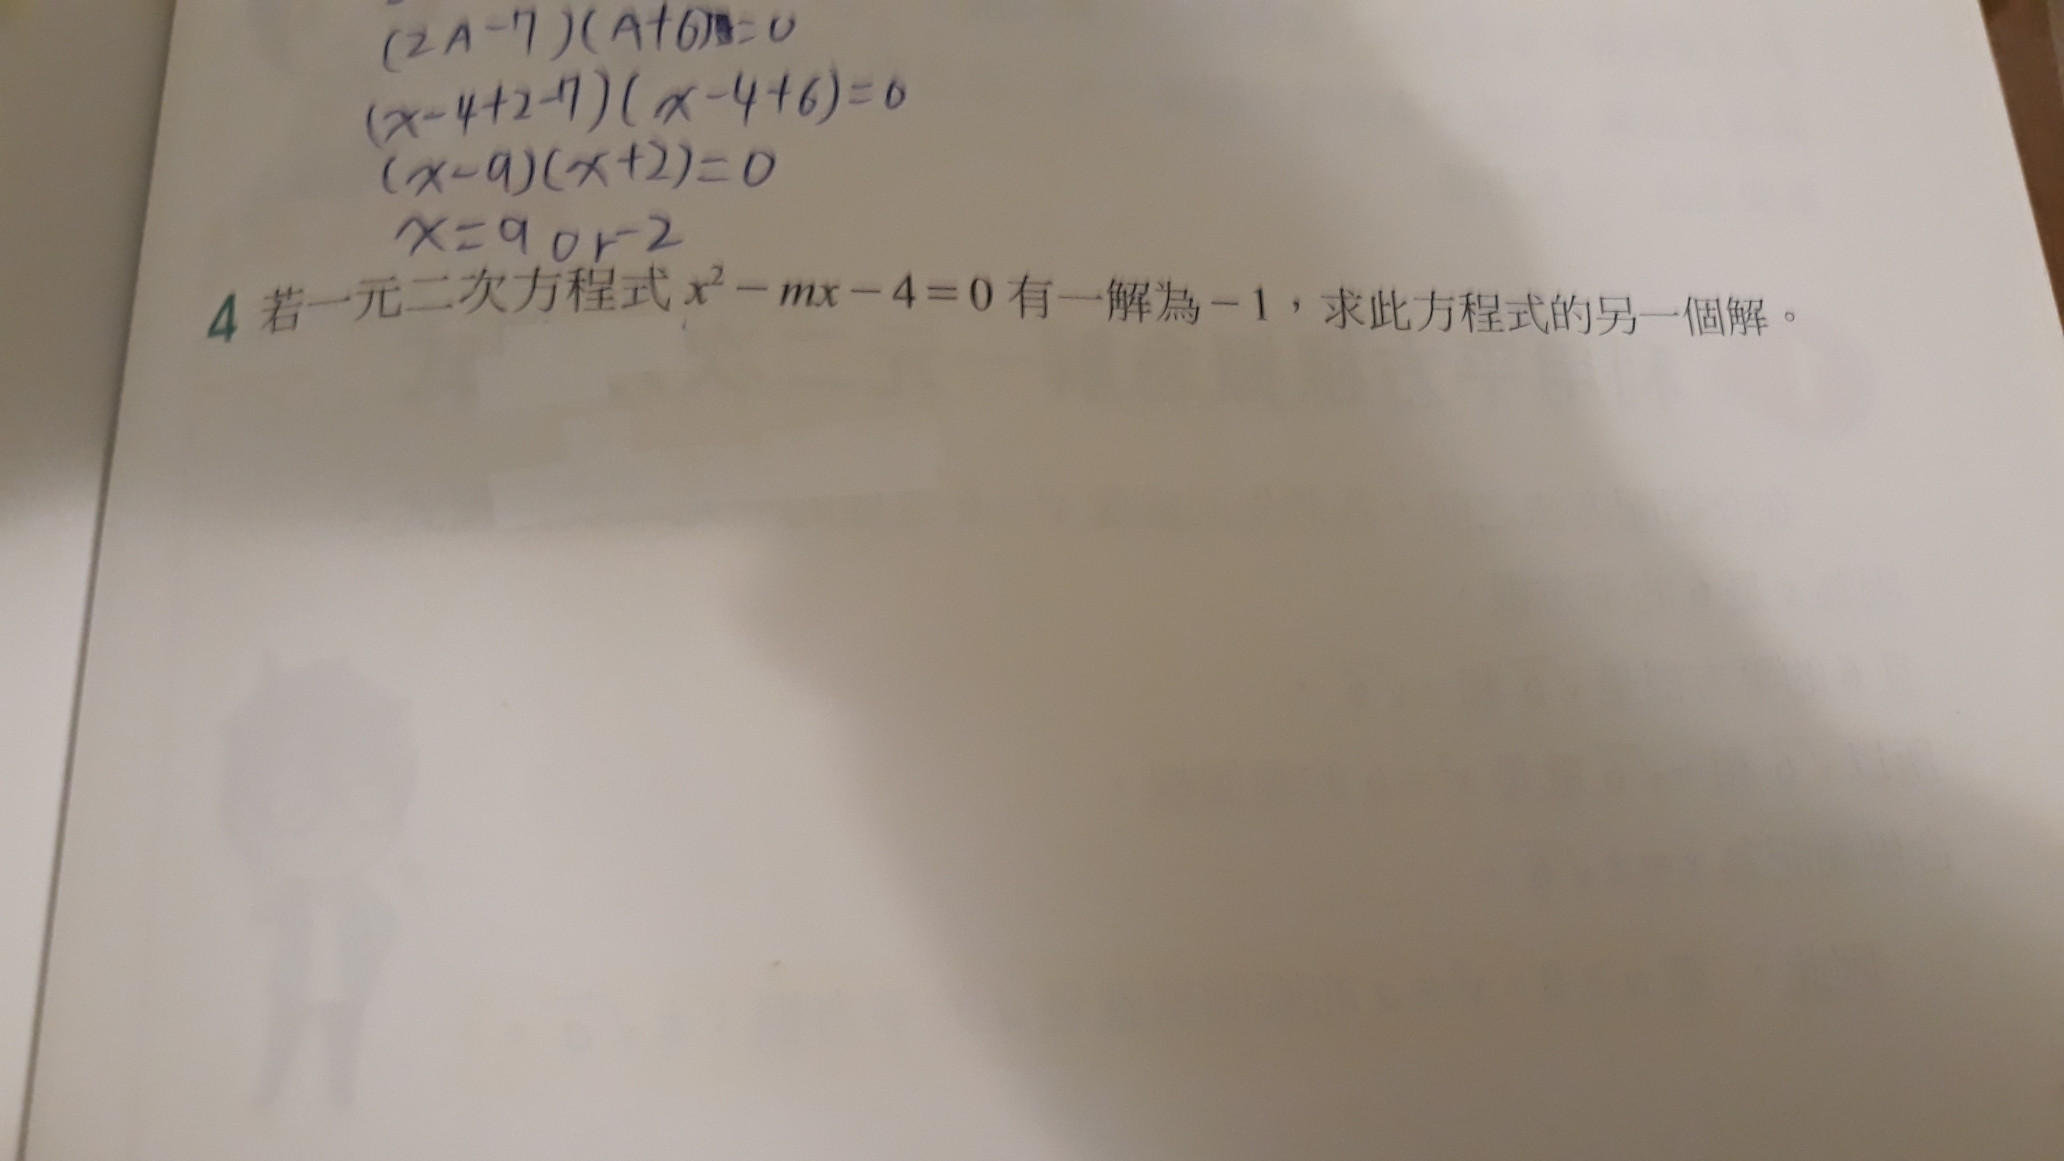 (2A-7)(A+6)=0
(x-4+2-7)(x-4+6)=0
(x-9)(x+2)=0
x=9 or -2
4 若一元二次方程式 x²-mx-4=0 有一解為-1，求此方程式的另一個解。